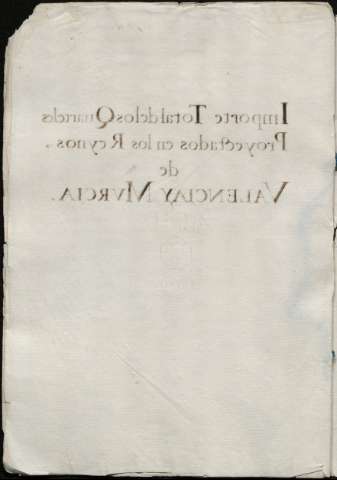 Importe Total de los Quarteles
Proyectados en los Reynos.
de
VALENCIA Y MVRCIA.